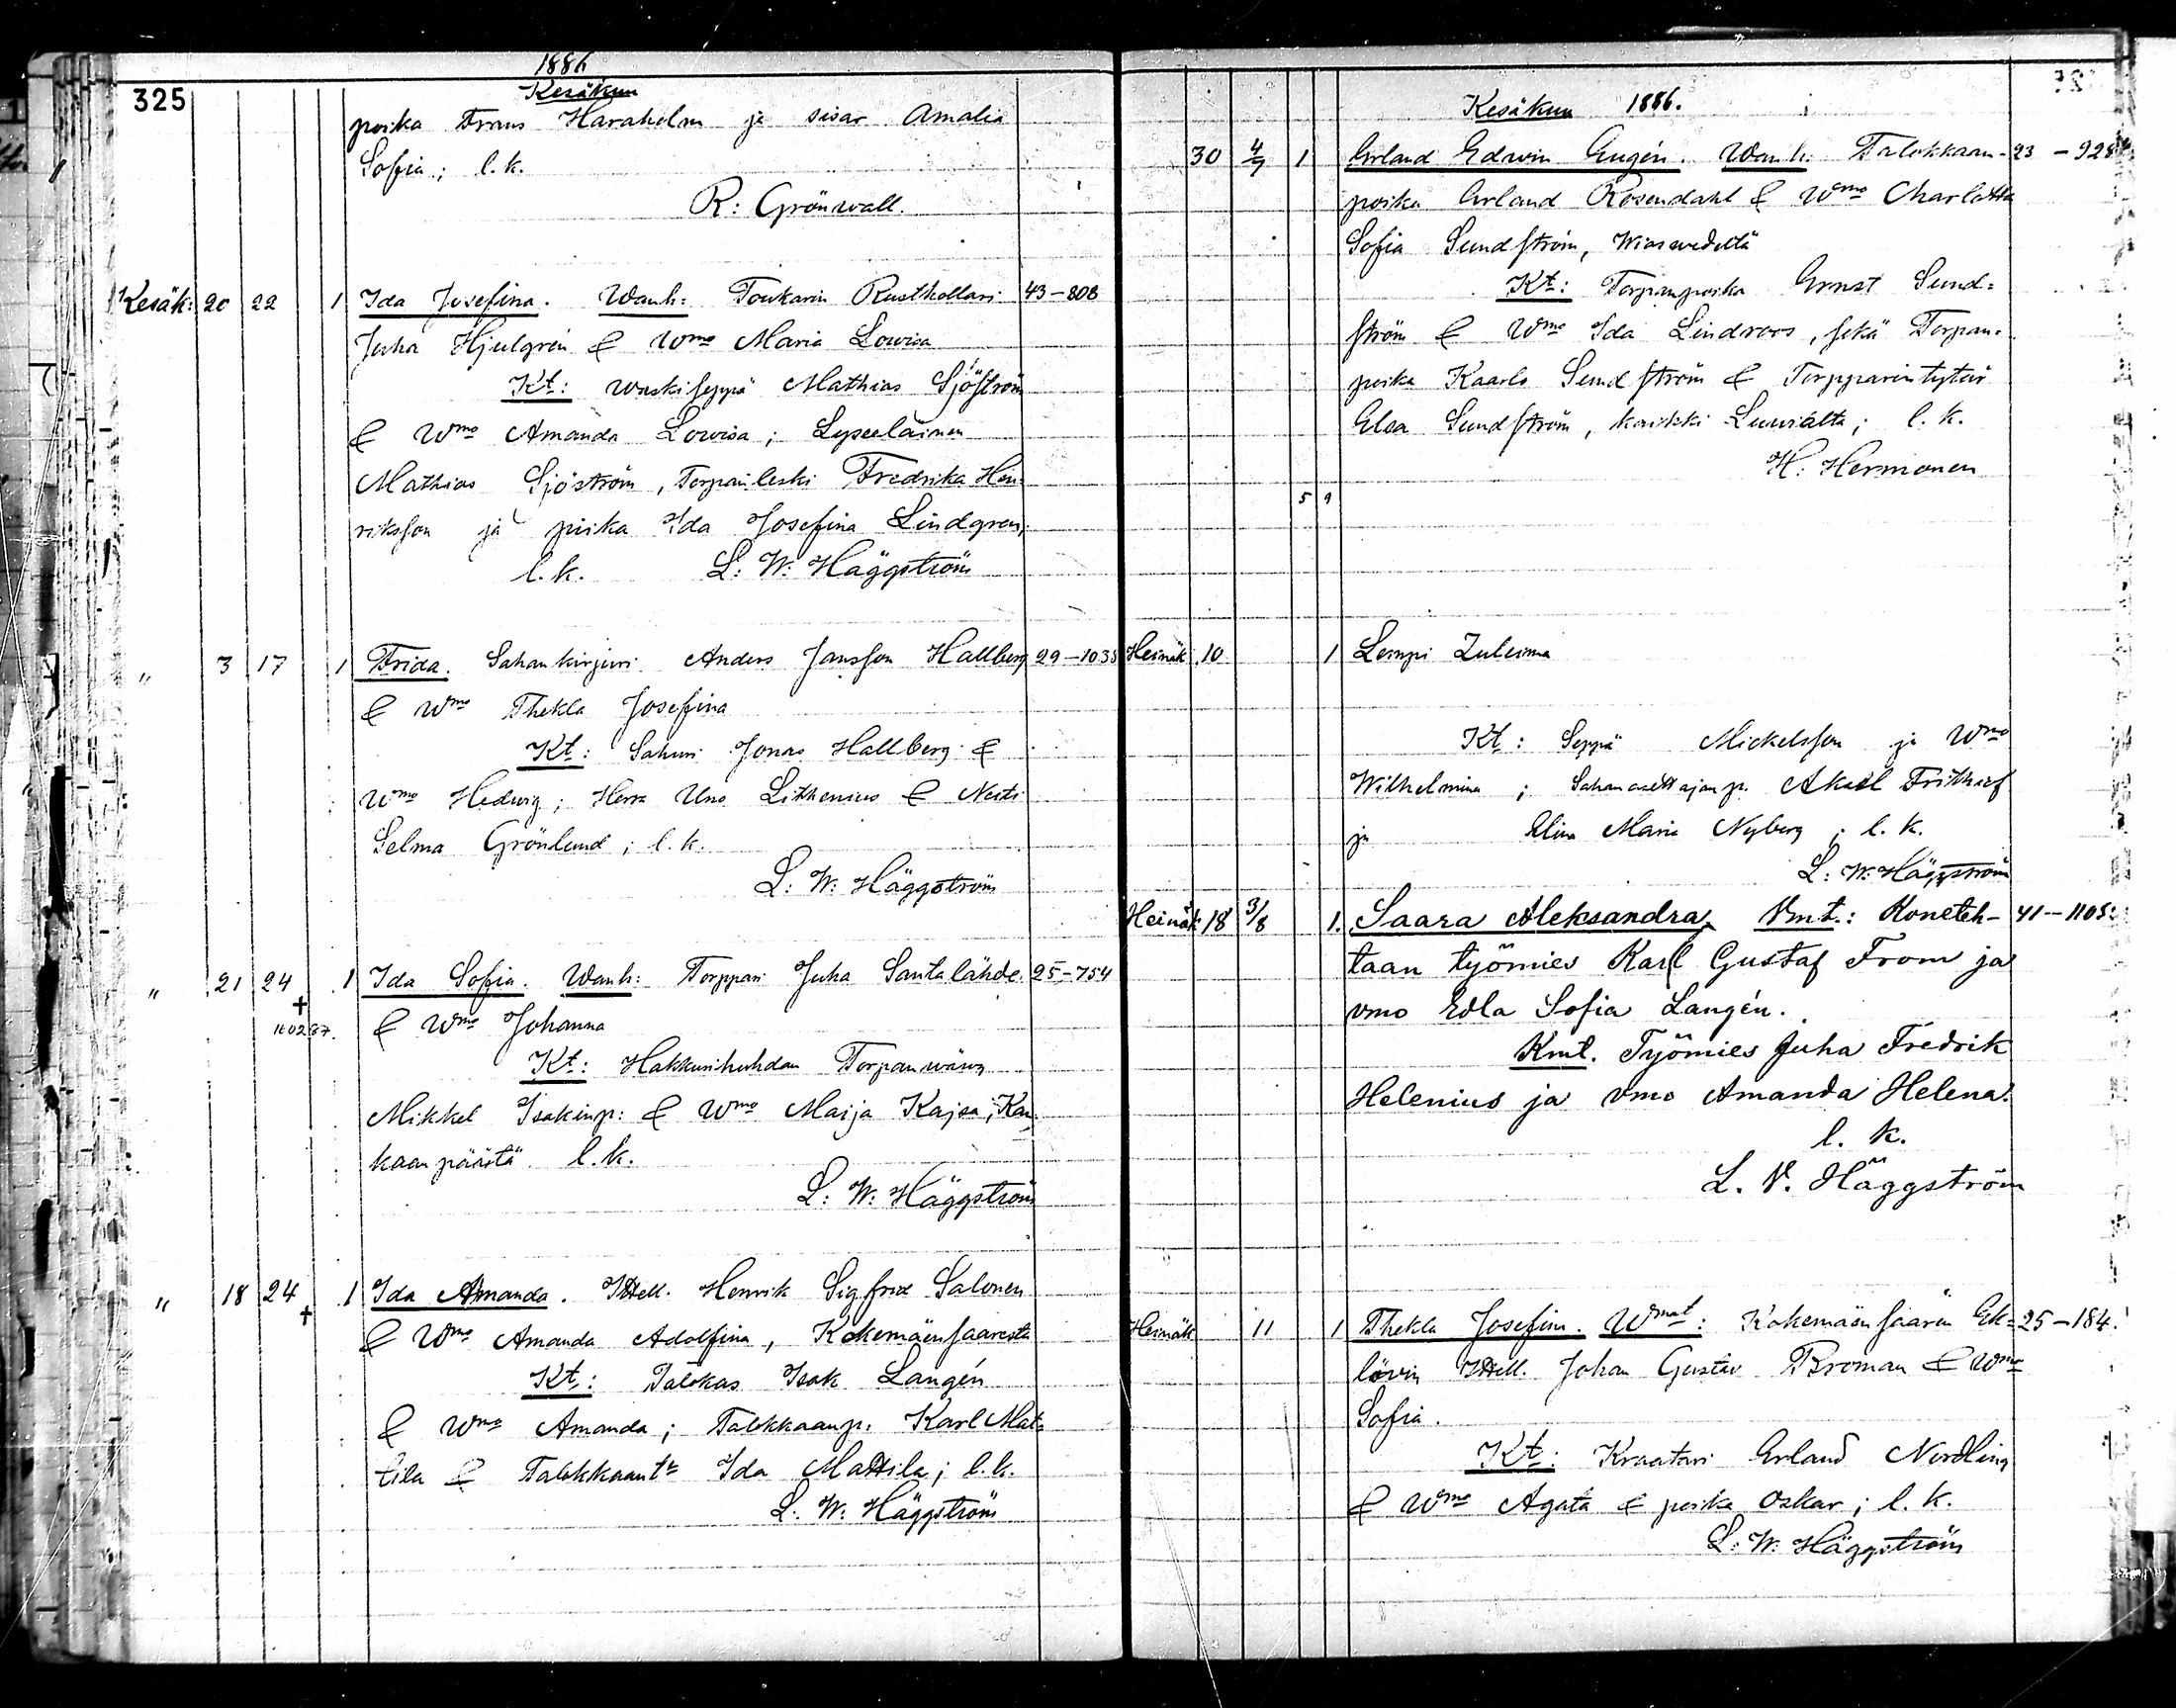 1886
Kesäkuu
325
poika Frans Haraholm ja sisar Amalia
Sofia; l.k.
R: Grönwall.
Kesäk: 20 22 1 Ida Josefina. Wanh: Toukarin Rusthollari 43-808
Juha Hjulgrén & Wmo Maria Lowisa
Kt: Waskiseppä Mathias Sjöström
& Wmo Amanda Lowisa; Lyseelainen
Mathias Sjöström, Torpanleski Fredrika Hen
riksson ja piika Ida Josefina Lindgren,
l.k. L: W: Häggström
" 3 17 1 Frida. Sahankirjuri Anders Jansson Hallberg 29-1035
& Wmo Thekla Josefina
Kt: Sahuri Jonas Hallberg &
Wmo Hedwig; Herra Uno Lithenius & Neiti
Selma Grönlund; l.k.
L: W: Häggström
" 21 24 1 Ida Sofia. Wanh: Torppari Juha Santalähde. 25-754
+ 160287. & Wmo Johanna
Kt: Hakkurihuhdan Torpanwäwy
Mikkel Isakinp: & Wmo Maija Kajsa; Kan
kaanpäästä l.k.
L: W: Häggström
" 18 24 + 1 Ida Amanda. Itsell. Henrik Sigfrid Salonen
& Wmo Amanda Adolfina, Kokemäensaaresta
Kt: Talokas Isak Langén
& Wmo Amanda; Talokkaanp. Karl Mat-
tila & Talokkaantr Ida Mattila; l.k.
L. W: Häggström
Kesäkuu 1886.
30 4/7 1 Erland Edwin Eugén. Wanh: Talokkaan- 23-928
poika Erland Rosendahl & Wmo Charlotta
Sofia Sundström, Wiaswedeltä
Kt: Torpanpoika Ernst Sund=
ström & Wmo Ida Lindroos, sekä Torpan-
poika Kaarlo Sundström & Torpparintytär
Elsa Sundström, kaikki Luvialta; l.k.
H: Hermonen
5 9
Heinäk 10 1 Lempi Zuleima
Kt: Seppä Mickelsson ja Wmo
Wilhelmina; Sahanasettajanp. Aksel Frithiof
ja Elina Maria Nyberg; l.k.
L: W: Häggström
Heinäk 18 3/8 1. Saara Aleksandra, Vmt.: Koneteh- 41-1105.
taan työmies Karl Gustaf From ja
vmo Edla Sofia Langén.
Kmt. Työmies Juha Fredrik
Helenius ja vmo Amanda Helena.
l. k.
L. V. Häggström
Heinäk 11 1 Thekla Josefina. Wmat: Kokemäensaaren Ek- 25-184.
lövin Itsell. Johan Gustav Broman & Wmo
Sofia.
Kt: Kraatari Erland Nordling
& Wmo Agata & poika Oskar; l.k.
L: W: Häggström